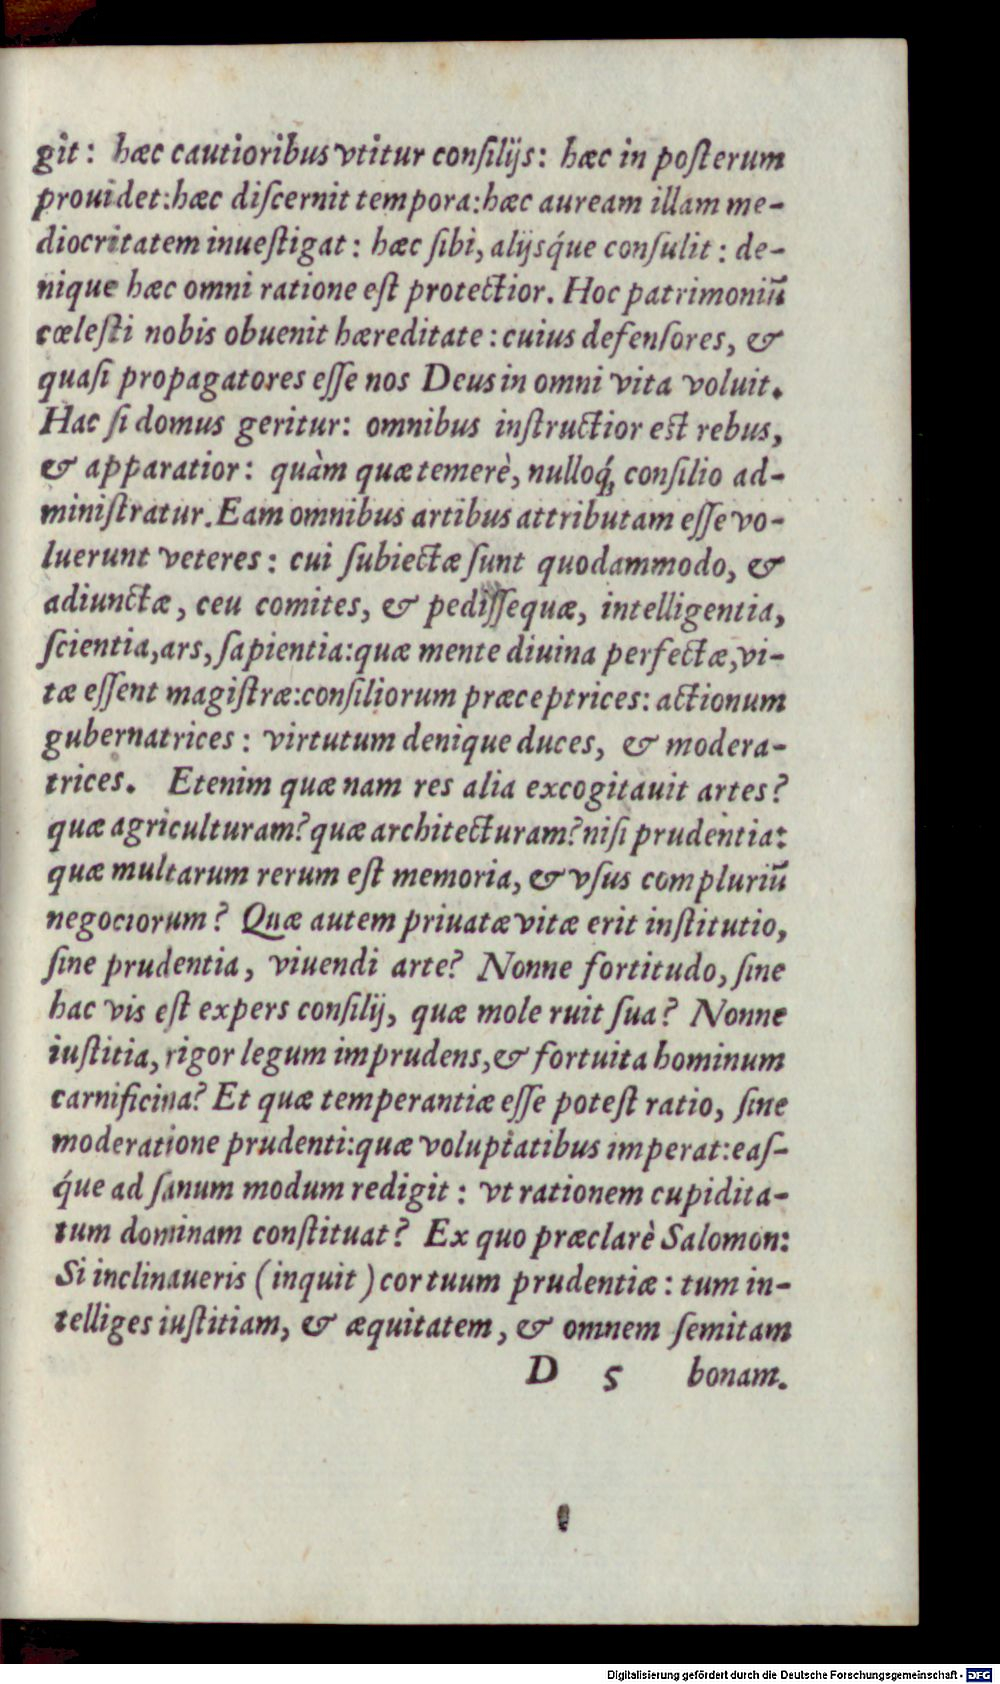 git: hæc cautioribus vtitur conſilijs: hæc in poſterum
prouidet: hæc diſcernit tempora: hæc auream illam me-
diocritatem inueſtigat: hæc ſibi, alijsq́ue conſulit: de-
nique hæc omni ratione eſt protectior. Hoc patrimoniũ
cœleſti nobis obuenit hæreditate: cuius defenſores, &
quaſi propagatores eſſe nos Deus in omni vita voluit.
Hac ſi domus geritur: omnibus inſtructior est rebus,
& apparatior: quàm quæ temerè, nulloq́; conſilio ad-
miniſtratur. Eam omnibus artibus attributam eſſe vo-
luerunt veteres: cui ſubiectæ ſunt quodammodo, &
adiunctæ, ceu comites, & pediſſequæ, intelligentia,
ſcientia, ars, ſapientia: quæ mente diuina perfectæ, vi-
tæ eſſent magiſtræ: conſiliorum præceptrices: actionum
gubernatrices: virtutum denique duces, & modera-
trices. Etenim quæ nam res alia excogitauit artes?
quæ agriculturam? quæ architecturam? niſi prudentia:
quæ multarum rerum eſt memoria, & vſus compluriũ
negociorum? Quæ autem priuatæ vitæ erit inſtitutio,
ſine prudentia, viuendi arte? Nonne fortitudo, ſine
hac vis eſt expers conſilij, quæ mole ruit ſua? Nonne
iuſtitia, rigor legum imprudens, & fortuita hominum
carnificina? Et quæ temperantiæ eſſe poteſt ratio, ſine
moderatione prudenti: quæ voluptatibus imperat: eaſ-
q́ue ad ſanum modum redigit: vt rationem cupidita-
tum dominam conſtituat? Ex quo præclarè Salomon:
Si inclinaueris (inquit) cor tuum prudentiæ: tum in-
telliges iuſtitiam, & æquitatem, & omnem ſemitam
D 5 bonam.
Digitalisierung gefördert durch die Deutsche Forschungsgemeinschaft - DFG